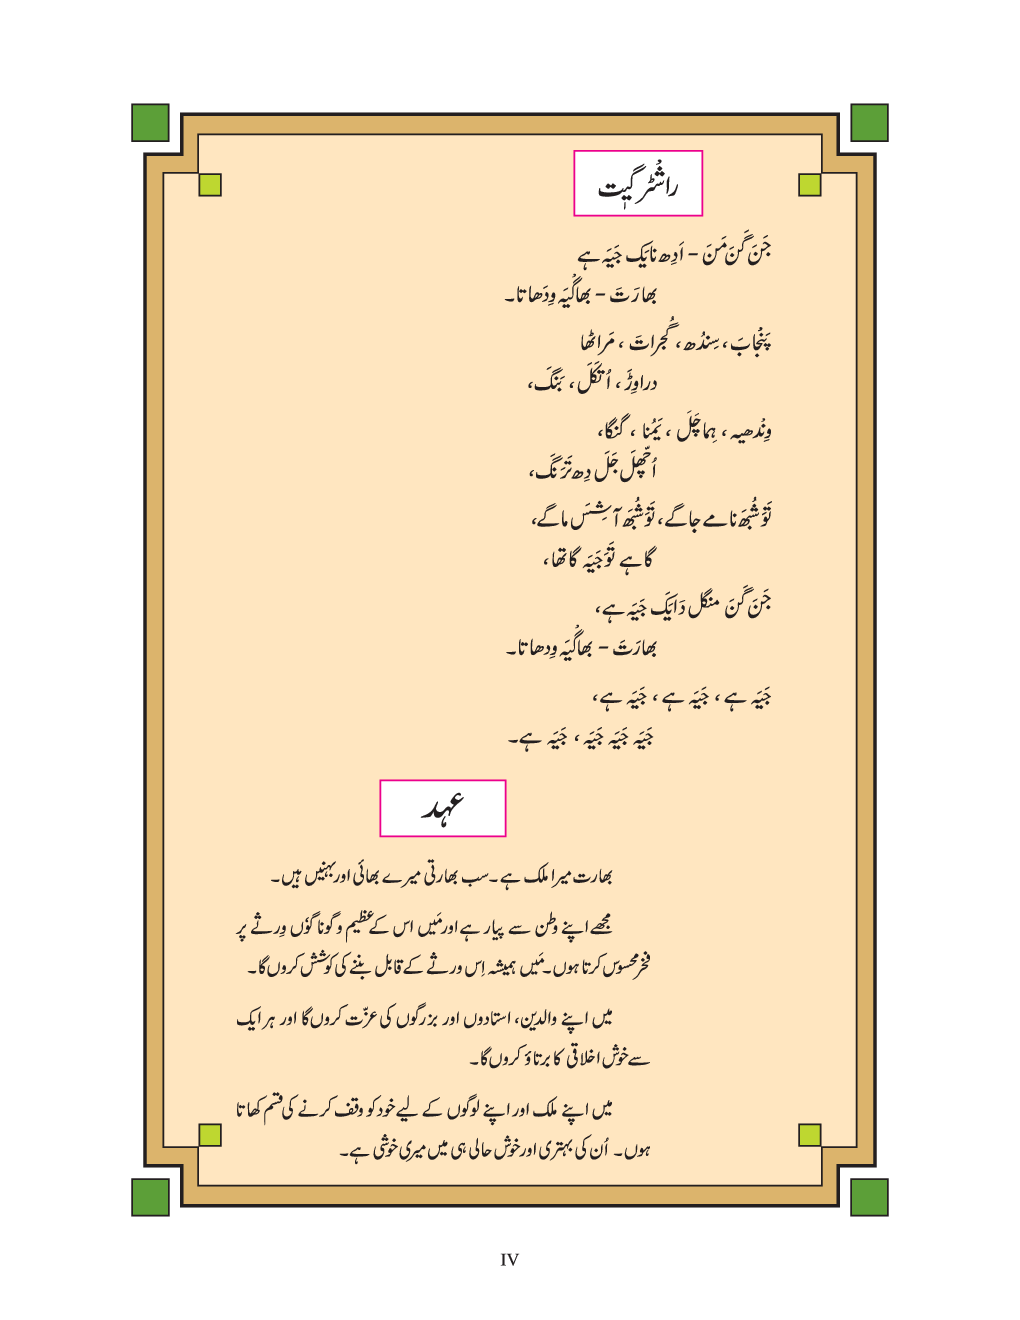 راشٹر گیت
جَنَ گَنَ مَنَ – اَدِھ نایَک جَیَہ ہے
بھارَتَ – بھاگْیَہ وِدَھاتا۔
پَنْجابَ، سِندُھ، گُجراتَ ، مَراٹھا
دراوِڑَ ، اُتکَلَ ، بَنگَ،
وِنْدھیہ ، ہِماچَلَ ، یَمُنا ، گنگا،
اُچّھلَ جَلَ دِھ تَرَنگَ،
تَوَ شُبھَ نامے جاگے، تَوَ شُبھَ آشِسَ ماگے،
گاہے تَوَ جَیَہ گاتھا،
جَنَ گَنَ منگل دَایَکَ جَیَہ ہے،
بھارَتَ – بھاگْیَہ وِدھاتا۔
جَیَہ ہے ، جَیَہ ہے ، جَیَہ ہے،
جَیَہ جَیَہ جَیَہ ، جَیَہ ہے۔
عہد
بھارت میرا ملک ہے۔ سب بھارتی میرے بھائی اور بہنیں ہیں۔
مجھے اپنے وطن سے پیار ہے اور مَیں اس کے عظیم و گوناگوٗں وِرثے پر
فخر محسوس کرتا ہوں۔ مَیں ہمیشہ اِس ورثے کے قابل بننے کی کوشش کروں گا۔
میں اپنے والدین، استادوں اور بزرگوں کی عزّت کروں گا اور ہر ایک
سے خوش اخلاقی کا برتاؤ کروں گا۔
میں اپنے ملک اور اپنے لوگوں کے لیے خود کو وقف کرنے کی قسم کھاتا
ہوں۔ اُن کی بہتری اور خوش حالی ہی میں میری خوشی ہے۔
IV